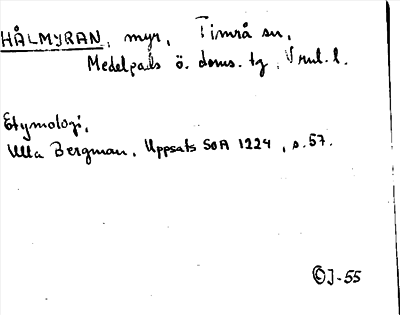 HÅLMYRAN, myr, Timrå sn,
Medelpads ö. doms. tg, Vnl. l.
Etymologi,
Ulla Bergman, Uppsats SOA 1224, s. 57.
©J-55